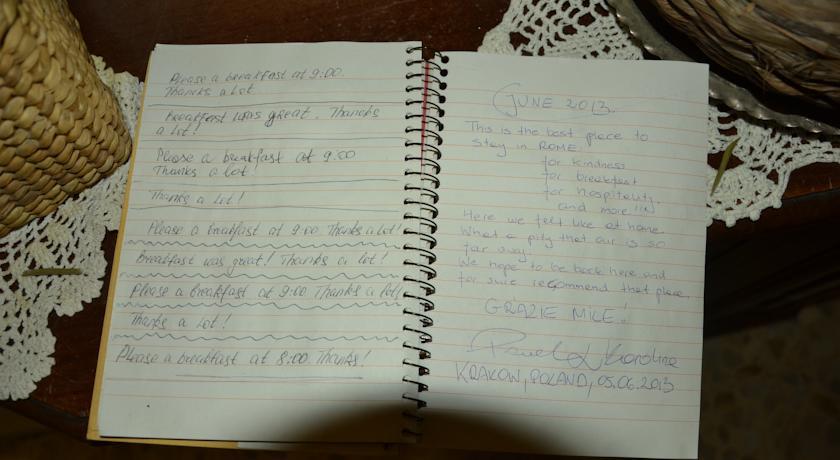 Please a breakfast at 9:00.
Thanks a lot
Breakfast was great. Thancks
a lot!
Please a breakfast at 9:00
Thanks a lot!
Thanks a lot!
Please a breakfast at 9:00 Thanks a lot!
Breakfast was great! Thanks a lot!
Please a breakfast at 9:00 Thanks a lot!
Thanks a lot!
Please a breakfast at 8:00. Thanks!
JUNE 2013.
This is the best place to
stay in ROME:
for kindness
for breakfast
for hospitality
and more!!!
Here we felt like at home
What a pity that our is so
far away.
We hope to be back here and
for sure recommend that place
GRAZIE MILE!
Pawel & Karolina
KRAKOW, POLAND, 05.06.2013